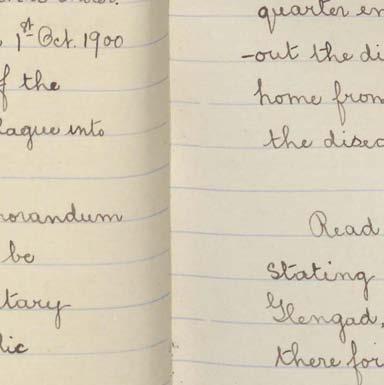 1st Oct. 1900
f the
lague into
morandum
be
tary
lic
quarter en
-out the di
home from
the disea
Read
Stating
Glengad,
there for